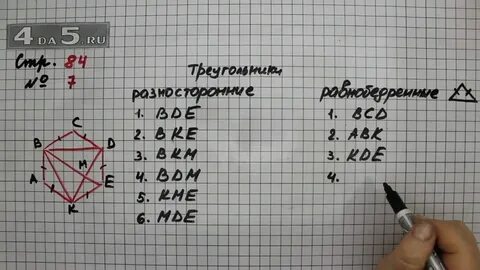 4DA5.RU
Стр. 84
№ 7
Треугольники
разносторонние
1. BDE
2. BKE
3. BKM
4. BDM
5. KME
6. MDE
равнобедренные
1. BCD
2. ABK
3. KDE
4.
C
B
D
M
A
E
K